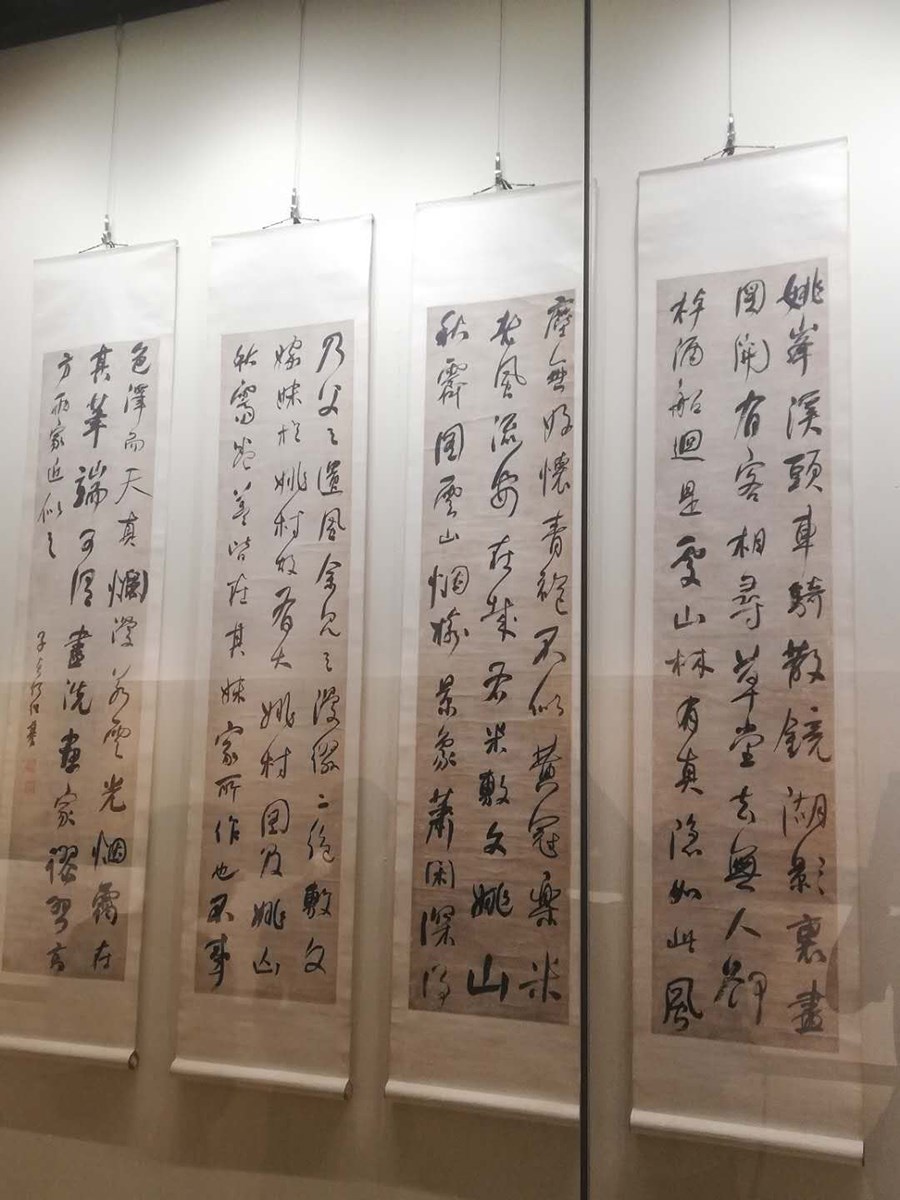 姚峯溪頭車騎散鏡湖影裏畫
圖開有客相尋草堂去無人卻
棹酒船迴是處山林有真隱如此風
塵無好懷青袍不似黃冠樂米
老風流安在哉右米敷文姚山
秋霽圖雲山烟樹景象蕭閑深得
乃父之遺風余見之漫綴二絕敷文
嫁妹於姚村故有大姚村圖及姚山
秋霽卷蓋皆在其妹家所作也不事
色澤而天真爛漫若雲光烟靄在
其筆端可謂盡洗畫家謬習高
方兩家近似之
子貞何紹基書